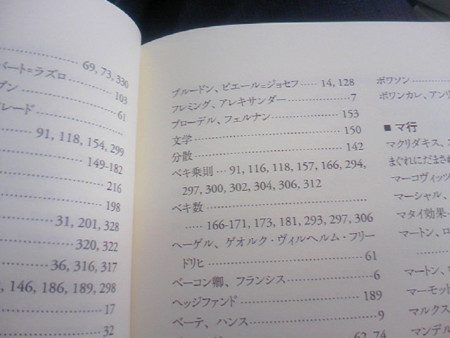 69, 73, 336
バート=ラズロ
103
ブン
61
レード
91, 118, 154, 299
149-182
216
198
31, 201, 328
320, 322
36, 316, 317
146, 186, 189, 298
17
32
プルードン、ピエール=ジョセフ……14, 128
フレミング、アレキサンダー……7
ブローデル、フェルナン……153
文学……150
分散……142
ベキ乗則……91, 116, 118, 157, 166, 294,
297, 300, 302, 304, 306, 312
ベキ数
……166-171, 173, 181, 293, 297, 306
ヘーゲル、ゲオルク・ヴィルヘルム・フリー
ドリヒ……61
ベーコン卿、フランシス……6
ヘッジファンド……189
ベーテ、ハンス……9
62, 74
ポワソン
ポワンカレ、アン
■ マ行
マクリダキス、ス
まぐれにだまされ
マーコヴィッツ
マーシャル、
マタイ効果
マートン、ロ
マートン、
マーモット
マンデル